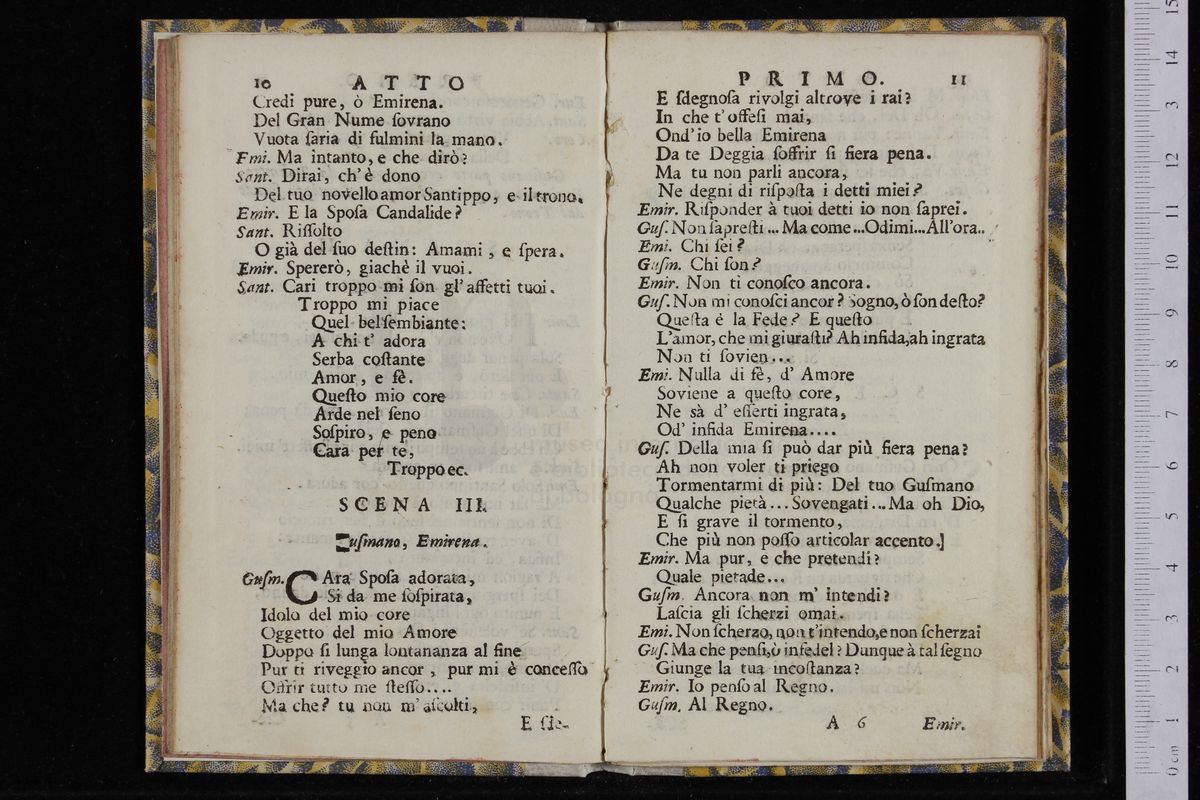 10 ATTO
Credi pure, ò Emirena.
Del Gran Nume ſovrano
Vuota ſaria di fulmini la mano.
Emi. Ma intanto, e che dirò?
Sant. Dirai, ch'è dono
Del tuo novello amor Santippo, e il trono.
Emir. E la Spoſa Candalide?
Sant. Riſſolto
O già del ſuo deſtin: Amami, e ſpera.
Emir. Spererò, giachè il vuoi.
Sant. Cari troppo mi ſon gl'affetti tuoi.
Troppo mi piace
Quel bel ſembiante:
A chi t' adora
Serba coſtante
Amor, e fè.
Queſto mio core
Arde nel ſeno
Soſpiro, e peno
Cara per te,
Troppo ec.
SCENA III.
Guſmano, Emirena.
Guſm. CAra Spoſa adorata,
Si da me ſoſpirata,
Idolo del mio core
Oggetto del mio Amore
Doppo ſi lunga lontananza al fine
Pur ti riveggio ancor, pur mi è conceſſo
Offrir tutto me ſteſſo....
Ma che? tu non m'aſcolti,
E ſde-
PRIMO. 11
E ſdegnoſa rivolgi altrove i rai?
In che t'offeſi mai,
Ond'io bella Emirena
Da te Deggia ſoffrir ſi fiera pena.
Ma tu non parli ancora,
Ne degni di riſpoſta i detti miei?
Emir. Riſponder à tuoi detti io non ſaprei.
Guſ. Non ſapreſti ... Ma come ... Odimi... All'ora..
Emi. Chi ſei?
Guſm. Chi ſon?
Emir. Non ti conoſco ancora.
Guſ. Non mi conoſci ancor? Sogno, ò ſon deſto?
Queſta é la Fede? E queſto
L'amor, che mi giuraſti? Ah infida, ah ingrata
Non ti ſovien...
Emi. Nulla di fè, d' Amore
Soviene a queſto core,
Ne sà d' eſſerti ingrata,
Od' infida Emirena....
Guſ. Della mia ſi può dar più fiera pena?
Ah non voler ti priego
Tormentarmi di più: Del tuo Guſmano
Qualche pietà... Sovengati... Ma oh Dio,
E ſi grave il tormento,
Che più non poſſo articolar accento.]
Emir. Ma pur, e che pretendi?
Quale pietade...
Guſm. Ancora non m' intendi?
Laſcia gli ſcherzi omai.
Emi. Non ſcherzo, non t'intendo, e non ſcherzai
Guſ. Ma che penſi, ò infedel? Dunque à tal ſegno
Giunge la tua incoſtanza?
Emir. Io penſo al Regno.
Guſm. Al Regno.
A 6 Emir.